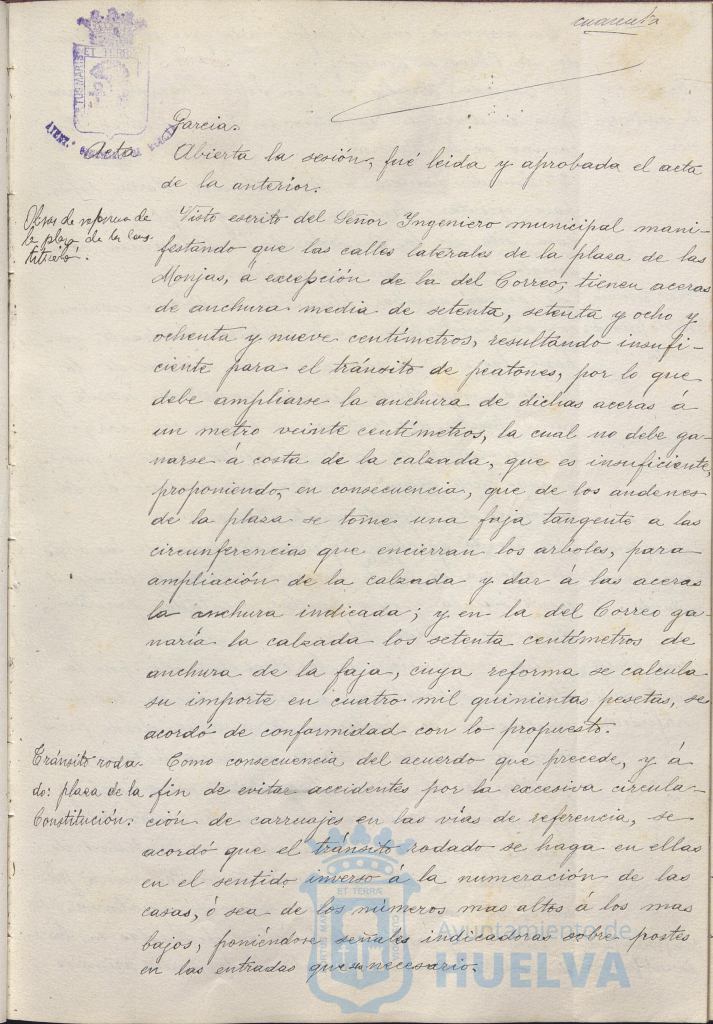 cuarenta
Garcia.
Acta Abierta la sesión, fué leida y aprobada el acta
de la anterior.
Obras de reforma de
la plaza de la Cons-
titución.
Visto escrito del Señor Ingeniero municipal mani-
festando que las calles laterales de la plaza de las
Monjas, a excepción de la del Correo, tienen aceras
de anchura media de setenta, setenta y ocho y
ochenta y nueve centímetros, resultando insufi-
ciente para el tránsito de peatones, por lo que
debe ampliarse la anchura de dichas aceras á
un metro veinte centímetros, la cual no debe ga-
narse á costa de la calzada, que es insuficiente,
proponiendo, en consecuencia, que de los andenes
de la plaza se tome una faja tangente a las
circunferencias que encierran los arboles, para
ampliación de la calzada y dar á las aceras
la anchura indicada; y en la del Correo ga-
naría la calzada los setenta centímetros de
anchura de la faja, cuya reforma se calcula
su importe en cuatro mil quinientas pesetas, se
acordó de conformidad con lo propuesto.
Tránsito roda-
do: plaza de la
Constitución:
Como consecuencia del acuerdo que precede, y á
fin de evitar accidentes por la excesiva circula-
ción de carruajes en las vías de referencia, se
acordó que el tránsito rodado se haga en ellas
en el sentido inverso á la numeración de las
casas, ó sea de los números mas altos á los mas
bajos, poniéndose señales indicadoras sobre postes
en las entradas que es necesario.
ET TERRA
Ayuntamiento de
HUELVA